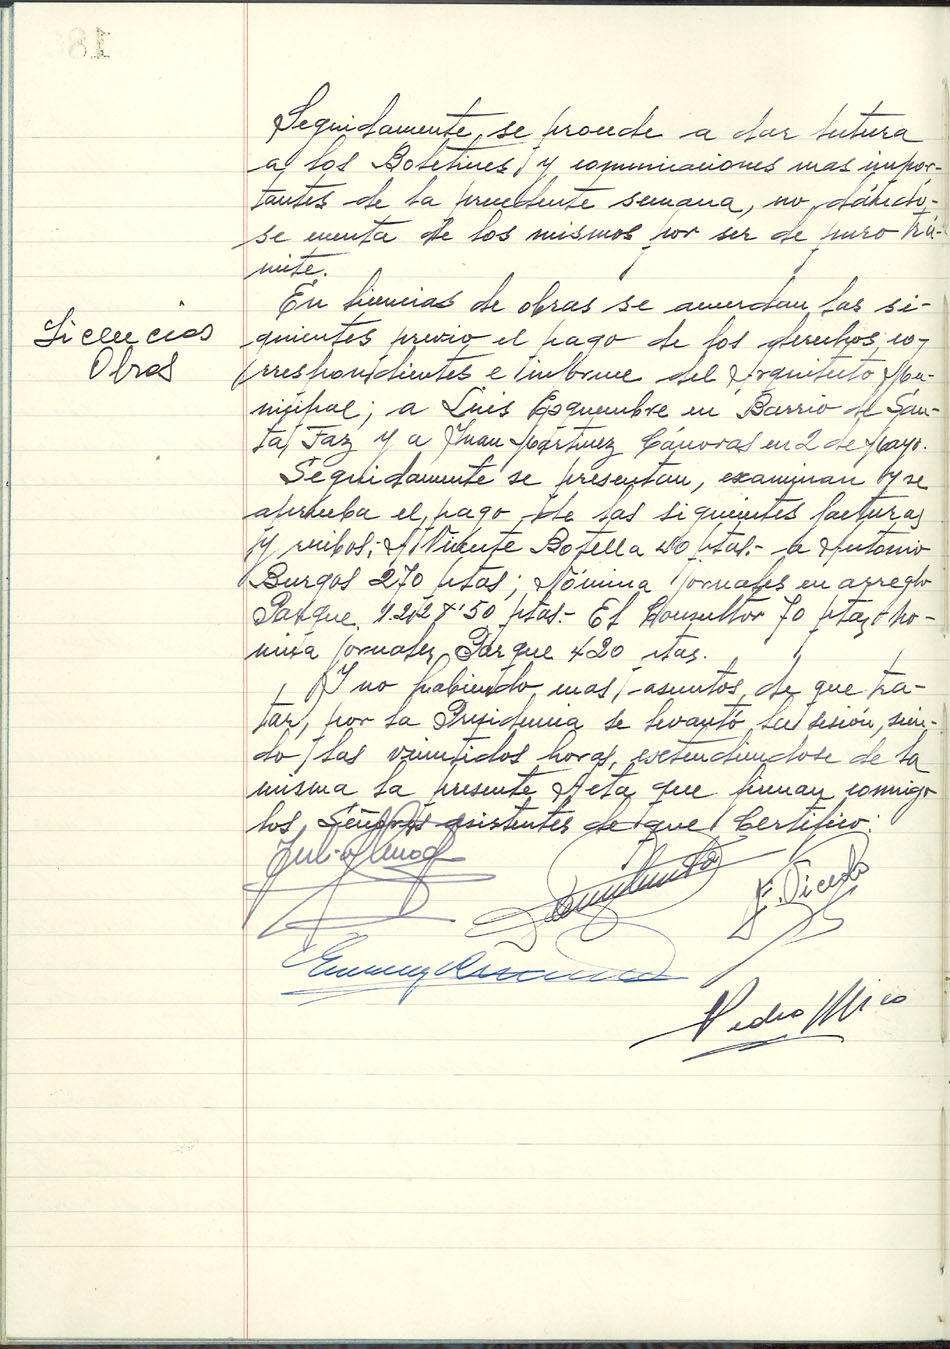 Seguidamente se procede a dar lectura
a los Boletines y comunicaciones mas impor-
tantes de la precedente semana, no dándo-
se cuenta de los mismos por ser de puro trá-
mite.
Licencias
Obras
En licencias de obras se acuerdan las si-
guientes previo el pago de los derechos co-
rrespondientes e informe del Arquitecto Mu-
nicipal; a Luis Esquembre en Barrio de San-
ta Faz y a Juan Martinez Cánovas en 2 de Mayo.
Seguidamente se presentan, examinan y se
aprueba el pago de las siguientes facturas
y recibos; A Vicente Botella 40 ptas.- a Antonio
Burgos 270 ptas; Nómina jornales en arreglo
Parque, ptas.- El Consultor 70 ptas; nó-
mina jornales Parque 420 ptas.
Y no habiendo mas asuntos de que tra-
tar, por la Presidencia se levantó la sesión, sien-
do las veintidos horas, extendiendose de la
misma la presente Acta que firman conmigo
los Señores asistentes de que Certifico:
F. Vicedo
Pedro Mico